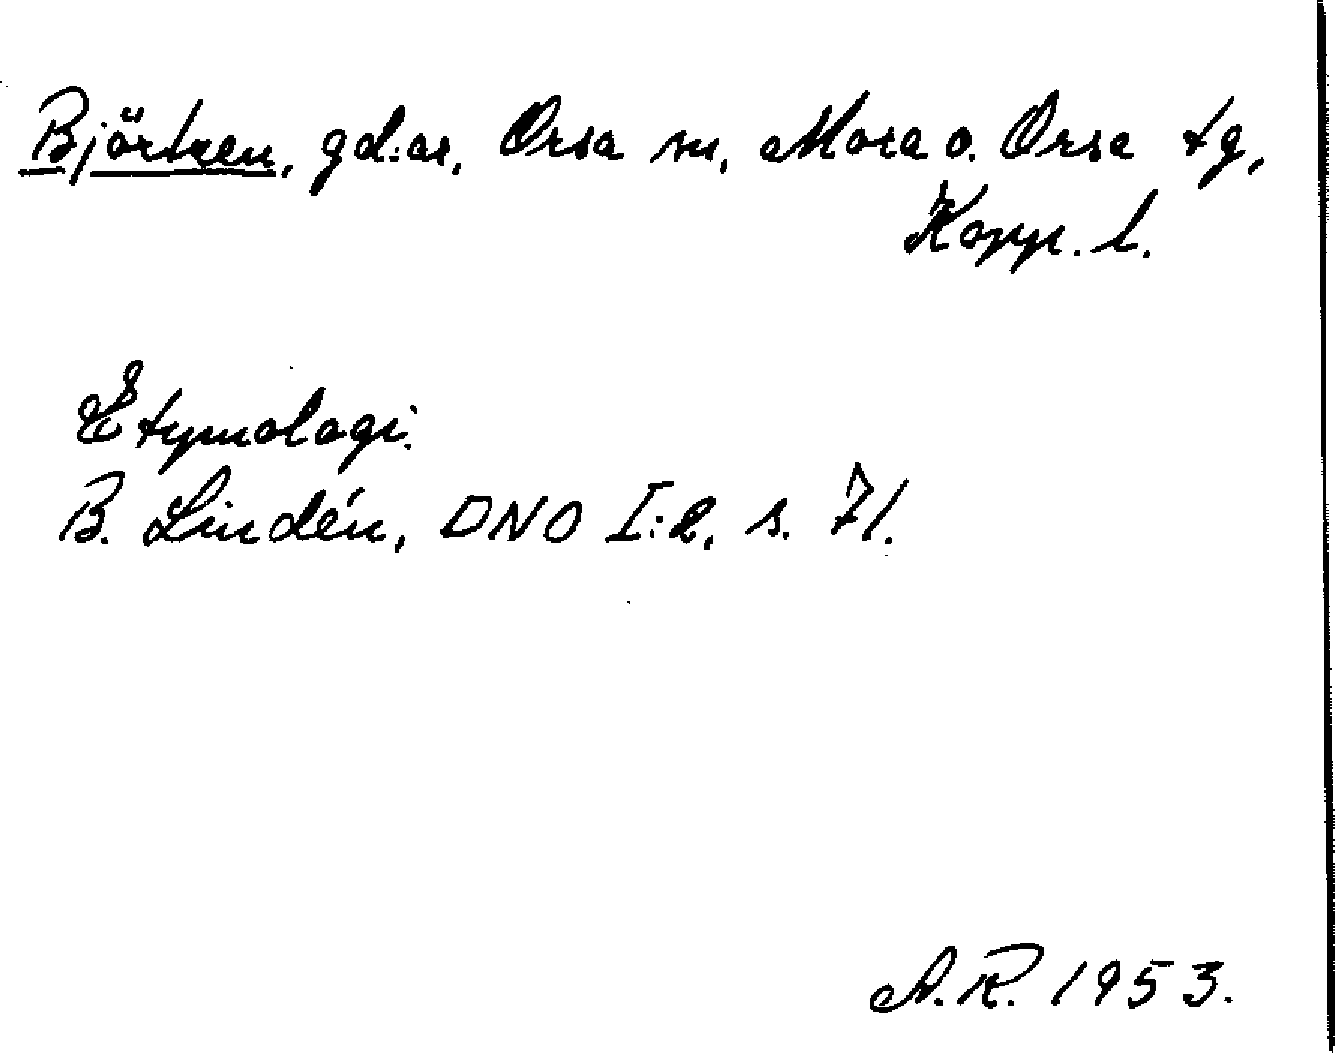 Björken, gd:ar, Orsa sn, Mora o. Orsa tg,
Kopp. l.
Etymologi.
B. Lindén, DNO I:2, s. 71.
A.R. 1953.